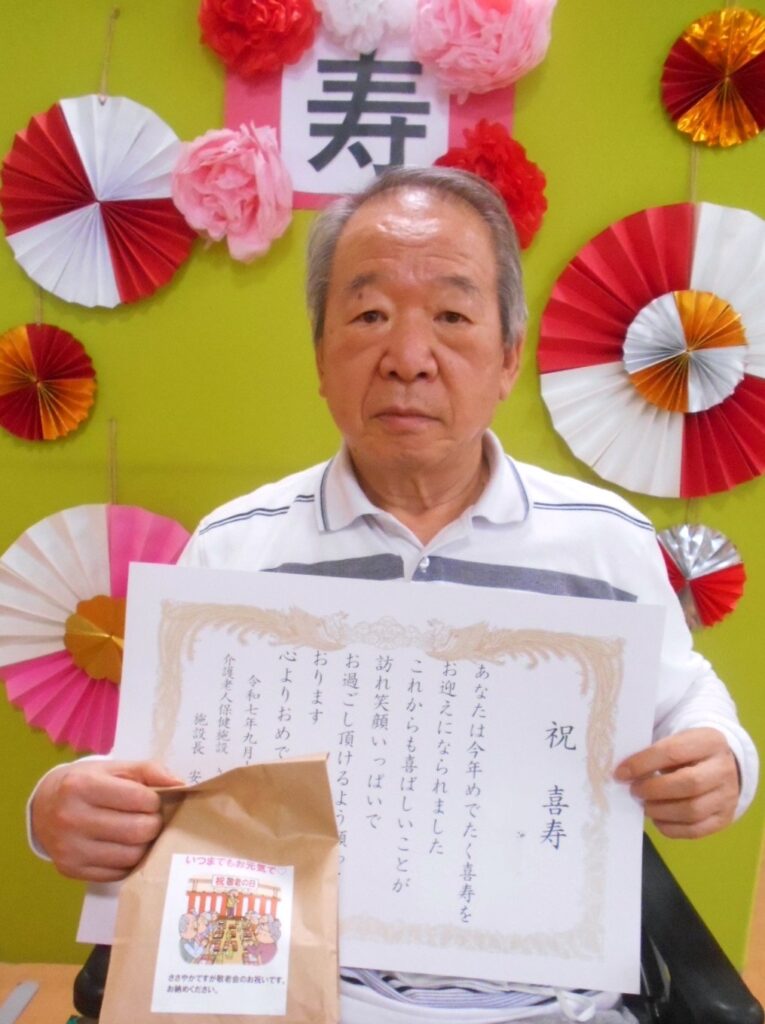 寿
祝 喜寿
あなたは今年めでたく喜寿を
お迎えになられました
これからも喜ばしいことが
訪れ笑顔いっぱいで
お過ごし頂けるよう願っ
おります
心よりおめで
令和七年九月
介護老人保健施設
施設長 安
いつまでもお元気で♡
祝 敬老の日
ささやかですが敬老会のお祝いです。
お納めください。